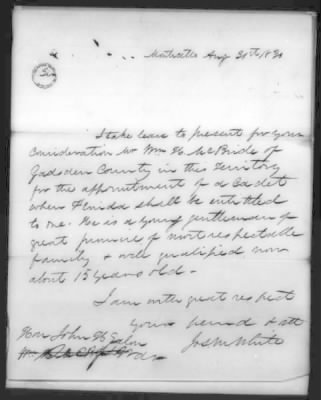 Monticello Aug 30th 1830
I take leave to present for your
Consideration Mr Wm H McBride of
Gadsden County in this Territory
for the appointment of a Cadet
when Florida shall be entitled
to one. He is a young gentleman of
great promise of most respectable
family & well qualified now
about 15 years old.
I am with great respect
yours
Jos M White
Hon John H Eaton